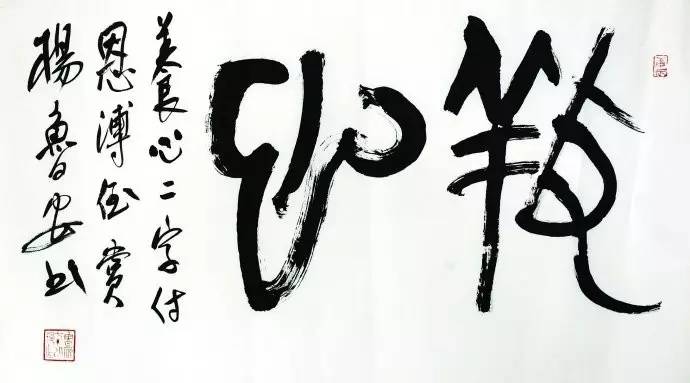 養心
養心二字付
恩溥侄賞
楊魯安书